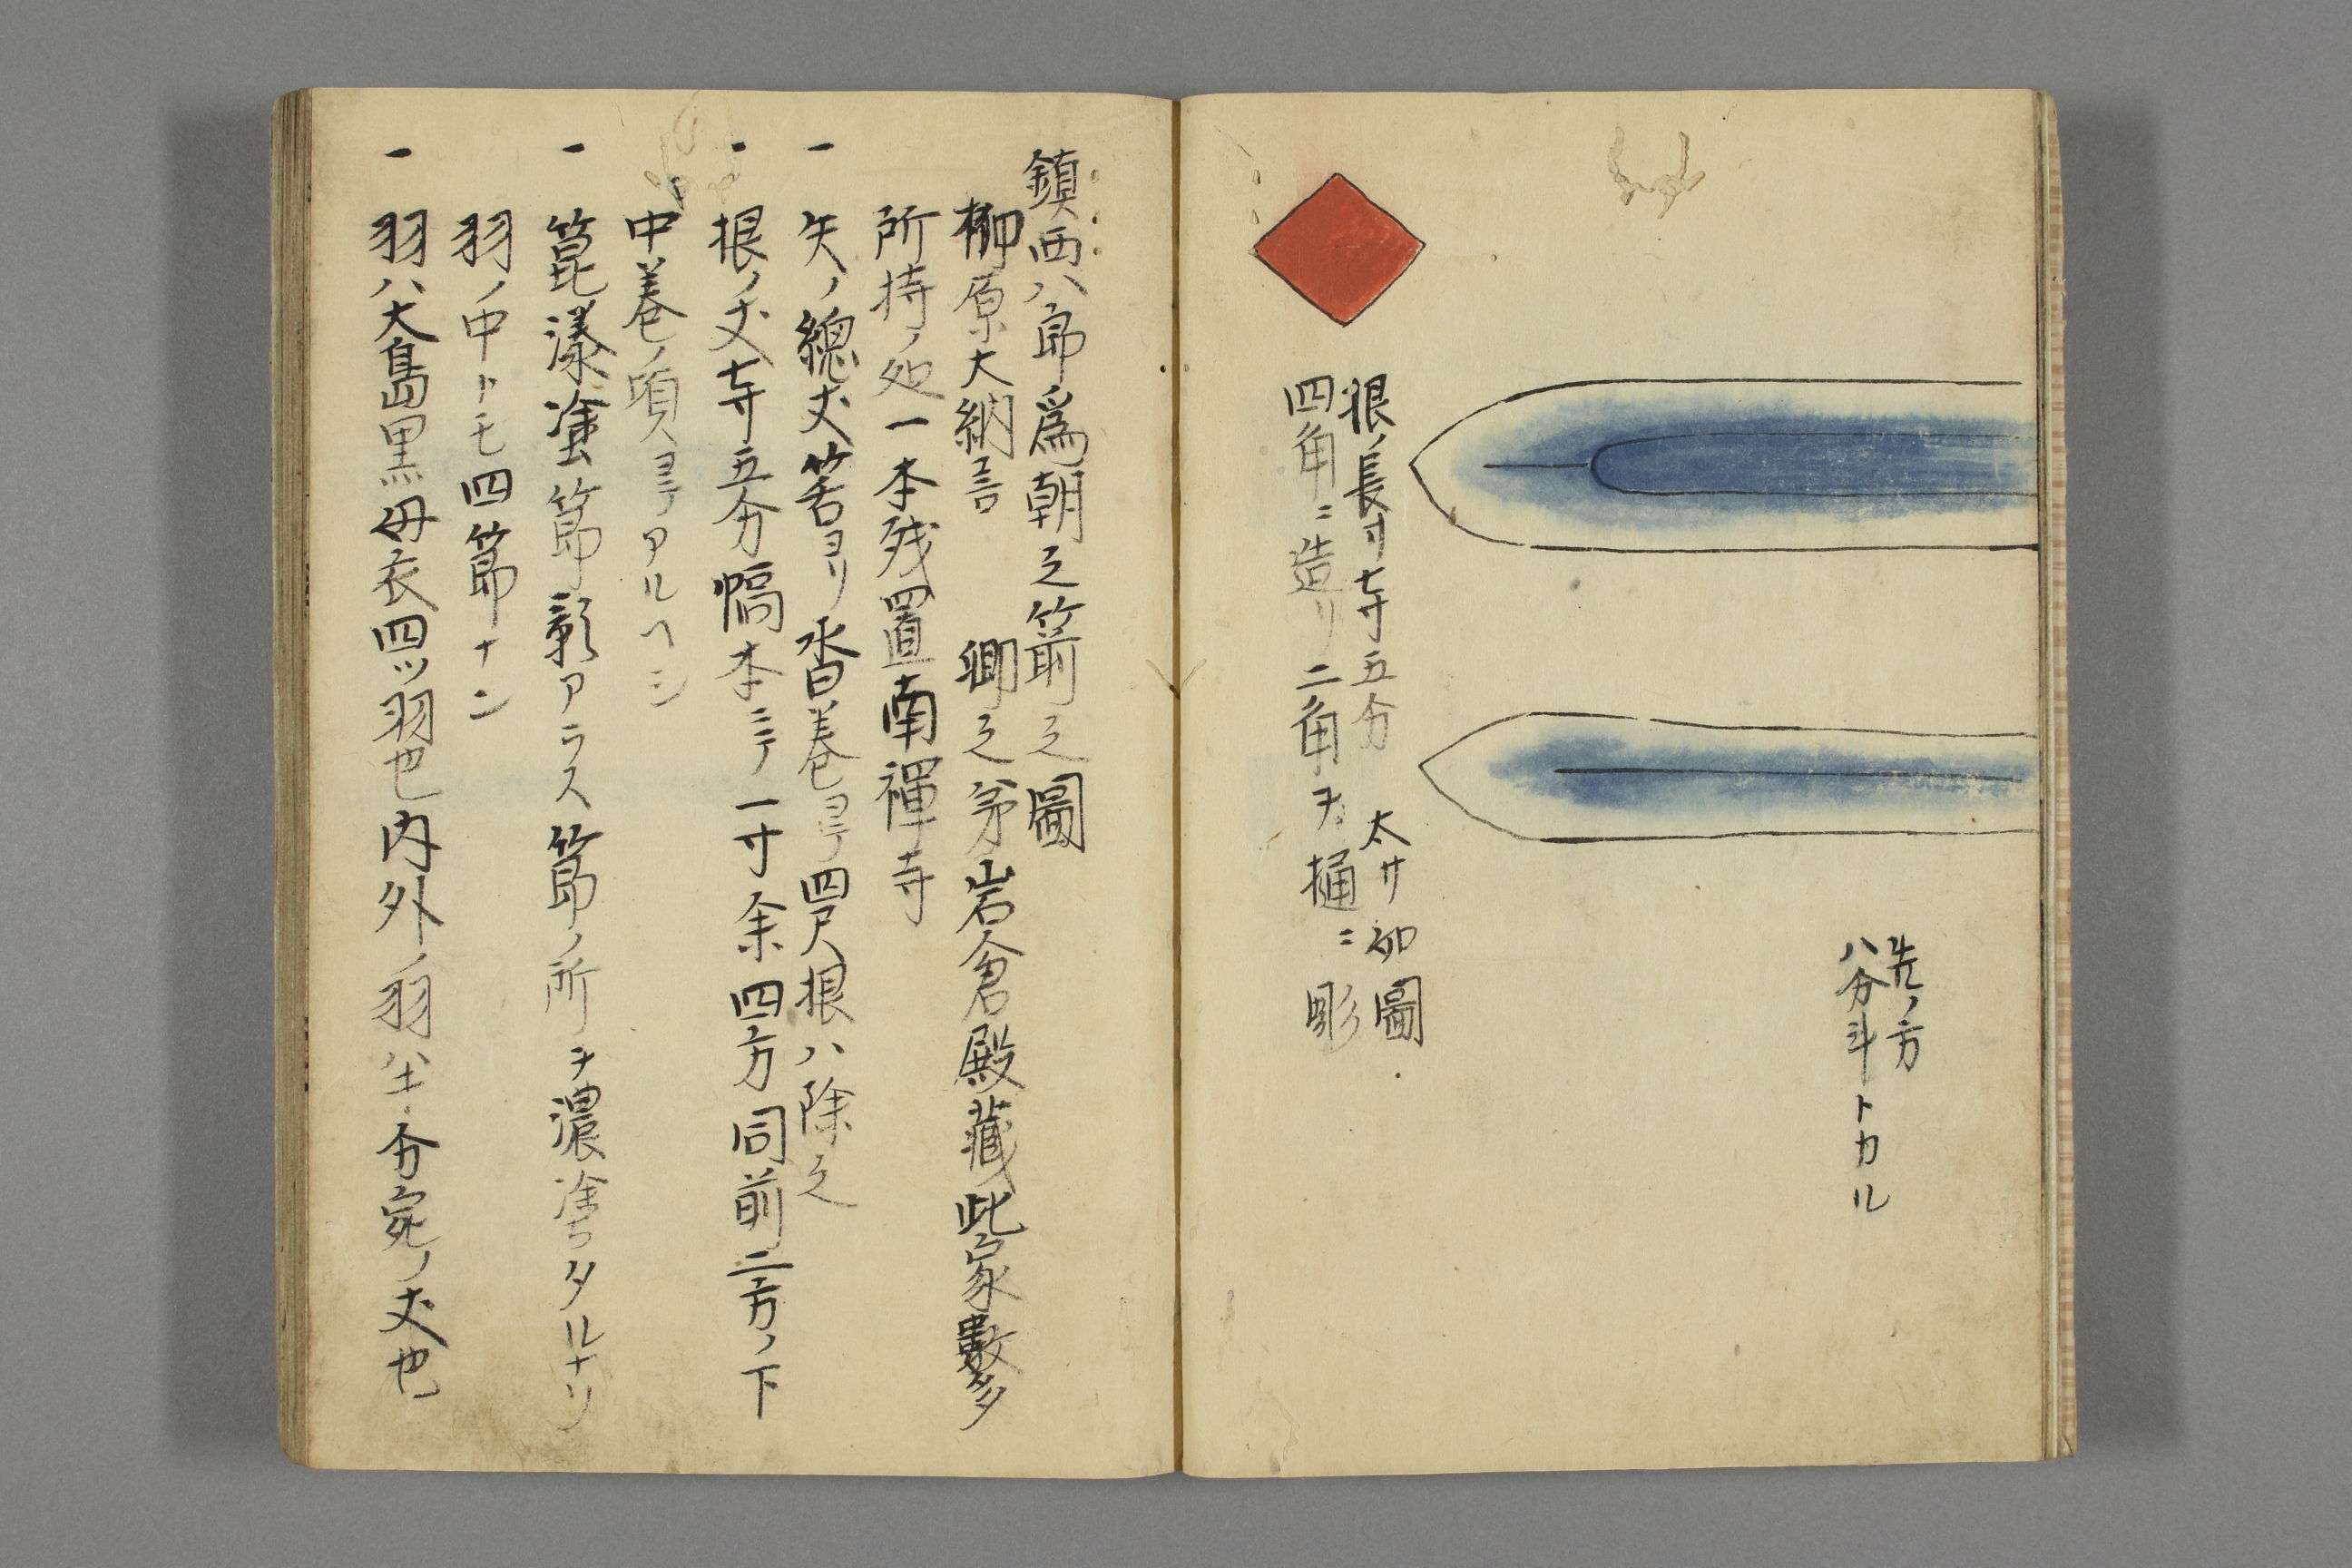 先ノ方
八分斗トカル
根ノ長寸七寸五分　太サ如圖
四角ニ造リ二角ヲ樋ニ彫
鎮西八郎爲朝之箭之圖
栁原大納言　卿之弟岩倉殿藏此家數多
所持ノ処一本残置南禪寺
一 矢ノ總丈筈ヨリ沓巻ヨテ四尺根ハ除之
一 根ノ丈七寸五分幅本ニテ一寸余四方同前二方ノ下
中巻ノ頃ヨテアルヘシ
一 箆漆塗節影アラス節ノ所ヲ濃塗タルナリ
羽ノ中トモ四節ナン
一 羽ハ大鳥黒母衣四ツ羽也内外ノ羽